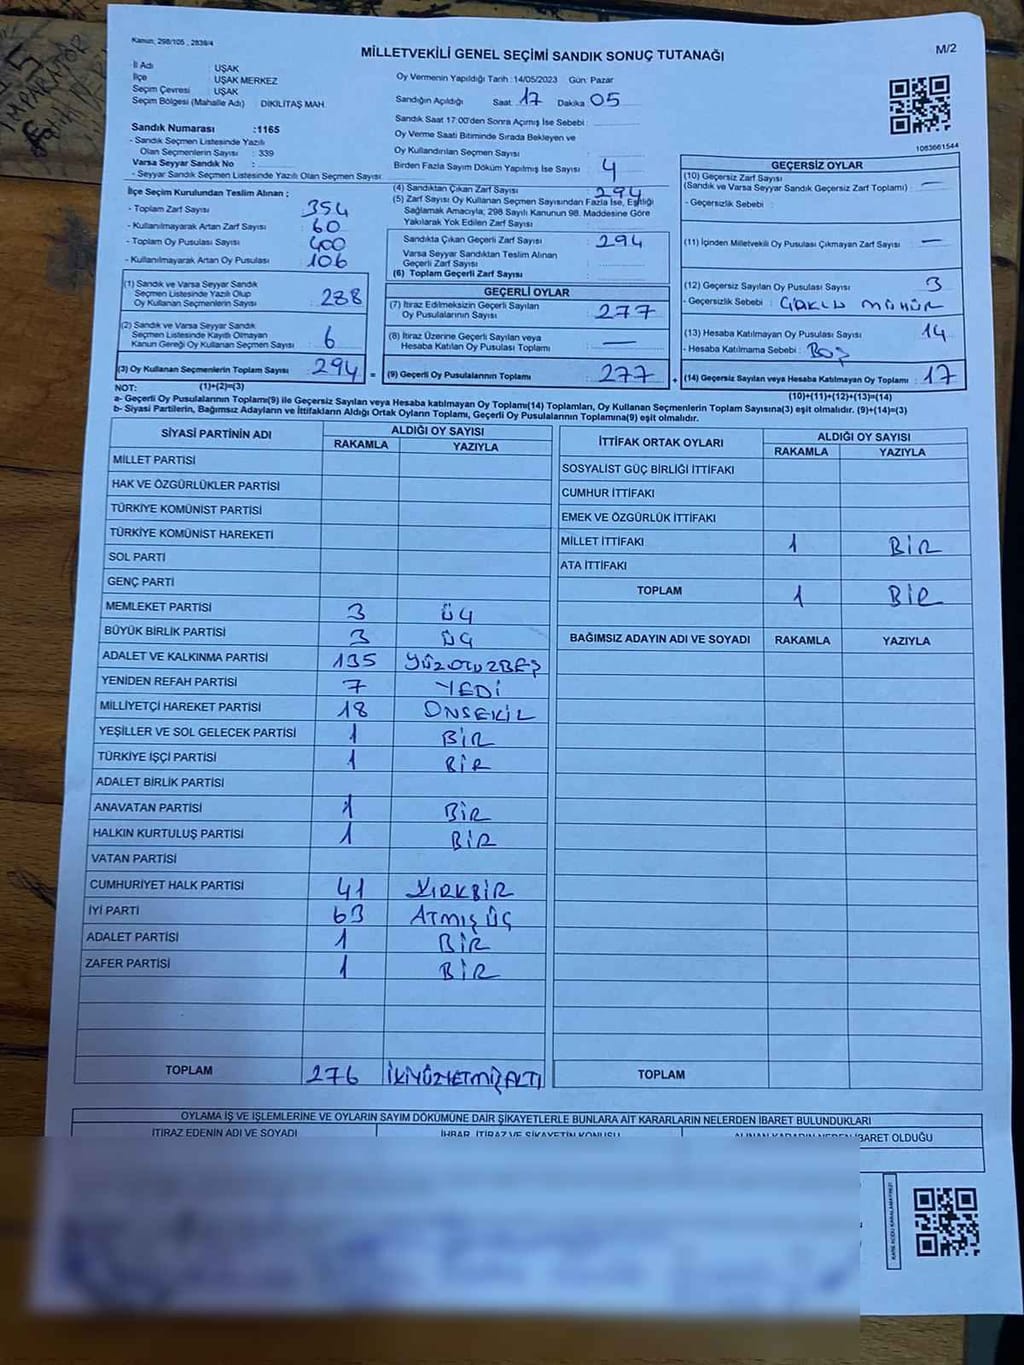 Kanun, 298/105 , 2839/4
MİLLETVEKİLİ GENEL SEÇİMİ SANDIK SONUÇ TUTANAĞI
M/2
İl Adı UŞAK
İlçe UŞAK MERKEZ
Seçim Çevresi UŞAK
Seçim Bölgesi (Mahalle Adı) DİKİLİTAŞ MAH.
Oy Vermenin Yapıldığı Tarih :14/05/2023 Gün: Pazar
Sandığın Açıldığı Saat 17 Dakika 05
Sandık Saat 17:00'den Sonra Açımış İse Sebebi :
Oy Verme Saati Bitiminde Sırada Bekleyen ve
Oy Kullandırılan Seçmen Sayısı :
Birden Fazla Sayım Döküm Yapılmış İse Sayısı : 4
Sandık Numarası :1165
- Sandık Seçmen Listesinde Yazılı
Olan Seçmenlerin Sayısı : 339
Varsa Seyyar Sandık No :
- Seyyar Sandık Seçmen Listesinde Yazılı Olan Seçmen Sayısı:
1063661544
İlçe Seçim Kurulundan Teslim Alınan ;
- Toplam Zarf Sayısı : 354
- Kullanılmayarak Artan Zarf Sayısı : 60
- Toplam Oy Pusulası Sayısı : 400
- Kullanılmayarak Artan Oy Pusulası : 106
(1) Sandık ve Varsa Seyyar Sandık
Seçmen Listesinde Yazılı Olup
Oy Kullanan Seçmenlerin Sayısı : 288
(2) Sandık ve Varsa Seyyar Sandık
Seçmen Listesinde Kayıtlı Olmayan
Kanun Gereği Oy Kullanan Seçmen Sayısı : 6
(3) Oy Kullanan Seçmenlerin Toplam Sayısı : 294 =
(4) Sandıktan Çıkan Zarf Sayısı : 294
(5) Zarf Sayısı Oy Kullanan Seçmen Sayısından Fazla İse, Eşitliği
Sağlamak Amacıyla; 298 Sayılı Kanunun 98. Maddesine Göre
Yakılarak Yok Edilen Zarf Sayısı :
Sandıkta Çıkan Geçerli Zarf Sayısı : 294
Varsa Seyyar Sandıktan Teslim Alınan
Geçerli Zarf Sayısı :
(6) Toplam Geçerli Zarf Sayısı :
GEÇERLİ OYLAR
(7) İtiraz Edilmeksizin Geçerli Sayılan
Oy Pusulalarının Sayısı : 277
(8) İtiraz Üzerine Geçerli Sayılan veya
Hesaba Katılan Oy Pusulası Toplamı : —
(9) Geçerli Oy Pusulalarının Toplamı : 277 +
GEÇERSİZ OYLAR
(10) Geçersiz Zarf Sayısı
(Sandık ve Varsa Seyyar Sandık Geçersiz Zarf Toplamı) : —
- Geçersizlik Sebebi :
(11) İçinden Milletvekili Oy Pusulası Çıkmayan Zarf Sayısı : —
(12) Geçersiz Sayılan Oy Pusulası Sayısı : 3
- Geçersizlik Sebebi : ÇOKLU MÜHÜR
(13) Hesaba Katılmayan Oy Pusulası Sayısı : 14
- Hesaba Katılmama Sebebi : BOŞ
(14) Geçersiz Sayılan veya Hesaba Katılmayan Oy Toplamı : 17
(10)+(11)+(12)+(13)=(14)
NOT: (1)+(2)=(3)
a- Geçerli Oy Pusulalarının Toplamı(9) ile Geçersiz Sayılan veya Hesaba katılmayan Oy Toplamı(14) Toplamları, Oy Kullanan Seçmenlerin Toplam Sayısına(3) eşit olmalıdır. (9)+(14)=(3)
b- Siyasi Partilerin, Bağımsız Adayların ve İttifakların Aldığı Ortak Oyların Toplamı, Geçerli Oy Pusulalarının Toplamına(9) eşit olmalıdır.
SİYASİ PARTİNİN ADI ALDIĞI OY SAYISI
RAKAMLA YAZIYLA
MİLLET PARTİSİ
HAK VE ÖZGÜRLÜKLER PARTİSİ
TÜRKİYE KOMÜNİST PARTİSİ
TÜRKİYE KOMÜNİST HAREKETİ
SOL PARTİ
GENÇ PARTİ
MEMLEKET PARTİSİ 3 ÜÇ
BÜYÜK BİRLİK PARTİSİ 3 ÜÇ
ADALET VE KALKINMA PARTİSİ 135 YÜZOTUZBEŞ
YENİDEN REFAH PARTİSİ 7 YEDİ
MİLLİYETÇİ HAREKET PARTİSİ 18 ONSEKİZ
YEŞİLLER VE SOL GELECEK PARTİSİ 1 BİR
TÜRKİYE İŞÇİ PARTİSİ 1 BİR
ADALET BİRLİK PARTİSİ
ANAVATAN PARTİSİ 1 BİR
HALKIN KURTULUŞ PARTİSİ 1 BİR
VATAN PARTİSİ
CUMHURİYET HALK PARTİSİ 41 KIRKBİR
İYİ PARTİ 63 ATMIŞ ÜÇ
ADALET PARTİSİ 1 BİR
ZAFER PARTİSİ 1 BİR
TOPLAM 276 İKİYÜZYETMİŞALTI
İTTİFAK ORTAK OYLARI ALDIĞI OY SAYISI
RAKAMLA YAZIYLA
SOSYALİST GÜÇ BİRLİĞİ İTTİFAKI
CUMHUR İTTİFAKI
EMEK VE ÖZGÜRLÜK İTTİFAKI
MİLLET İTTİFAKI 1 BİR
ATA İTTİFAKI
TOPLAM 1 BİR
BAĞIMSIZ ADAYIN ADI VE SOYADI RAKAMLA YAZIYLA
TOPLAM
OYLAMA İŞ VE İŞLEMLERİNE VE OYLARIN SAYIM DÖKÜMÜNE DAİR ŞİKAYETLERLE BUNLARA AİT KARARLARIN NELERDEN İBARET BULUNDUKLARI
İTİRAZ EDENİN ADI VE SOYADI İHBAR, İTİRAZ VE ŞİKAYETİN KONUSU ALINAN KARARIN NEDEN İBARET OLDUĞU